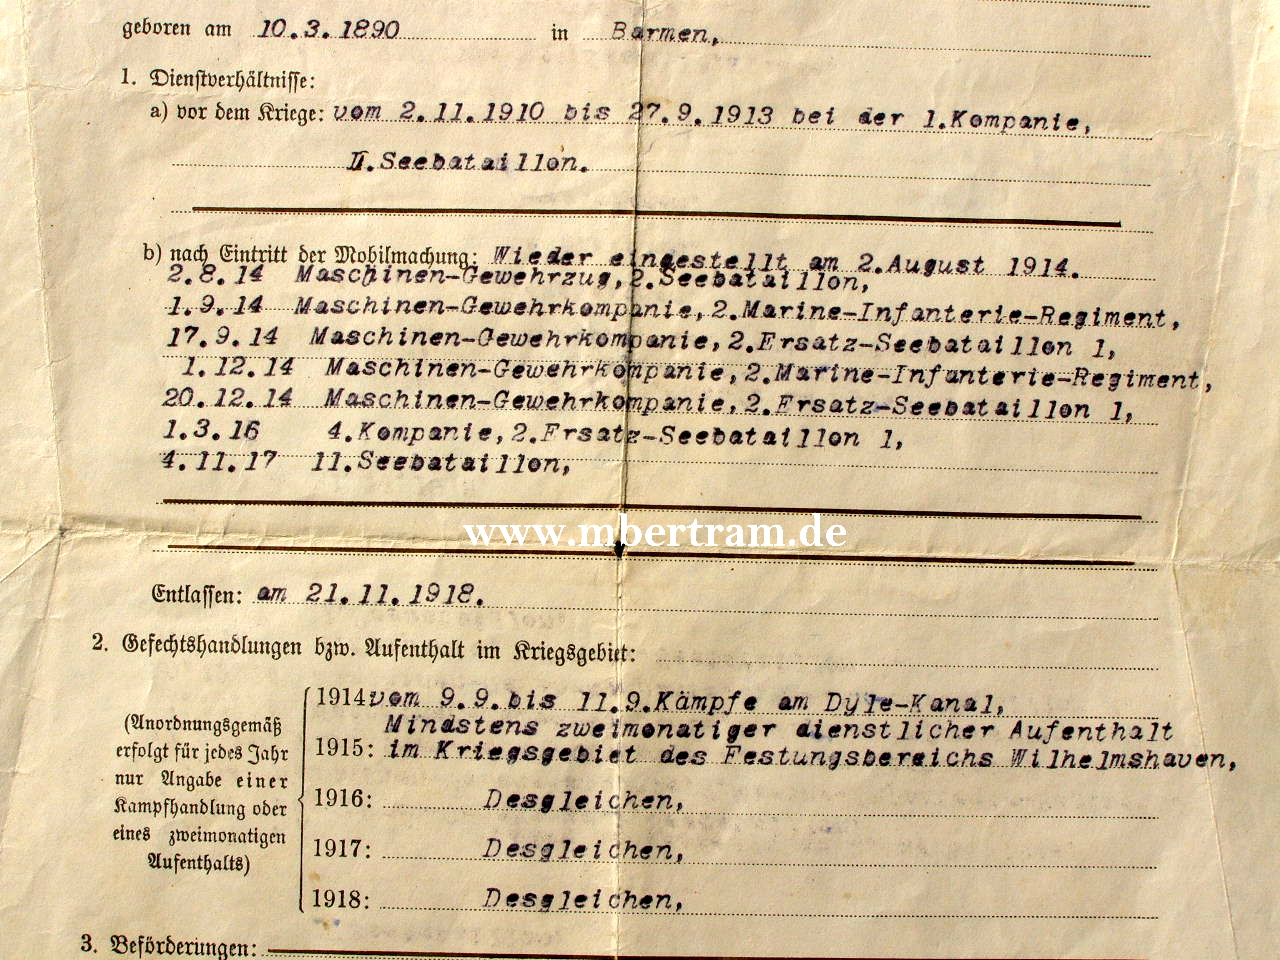 geboren am 10.3.1890 in Barmen,
1. Dienstverhältnisse:
a) vor dem Kriege: vom 2.11.1910 bis 27.9.1913 bei der 1.Kompanie,
II.Seebataillon.
b) nach Eintritt der Mobilmachung: Wieder eingestellt am 2.August 1914.
2.8.14 Maschinen-Gewehrzug,2.Seebataillon,
1.9.14 Maschinen-Gewehrkompanie,2.Marine-Infanterie-Regiment,
17.9.14 Maschinen-Gewehrkompanie,2.Ersatz-Seebataillon 1,
1.12.14 Maschinen-Gewehrkompanie,2.Marine-Infanterie-Regiment,
20.12.14 Maschinen-Gewehrkompanie,2.Ersatz-Seebataillon 1,
1.3.16 4.Kompanie,2.Ersatz-Seebataillon 1,
4.11.17 11.Seebataillon,
www.mbertram.de
Entlassen: am 21.11.1918.
2. Gefechtshandlungen bzw. Aufenthalt im Kriegsgebiet:
(Anordnungsgemäß
erfolgt für jedes Jahr
nur Angabe einer
Kampfhandlung oder
eines zweimonatigen
Aufenthalts)
1914 vom 9.9.bis 11.9.Kämpfe am Dyle-Kanal,
Mindstens zweimonatiger dienstlicher Aufenthalt
1915: im Kriegsgebiet des Festungsbereichs Wilhelmshaven,
1916: Desgleichen,
1917: Desgleichen,
1918: Desgleichen,
3. Beförderungen: